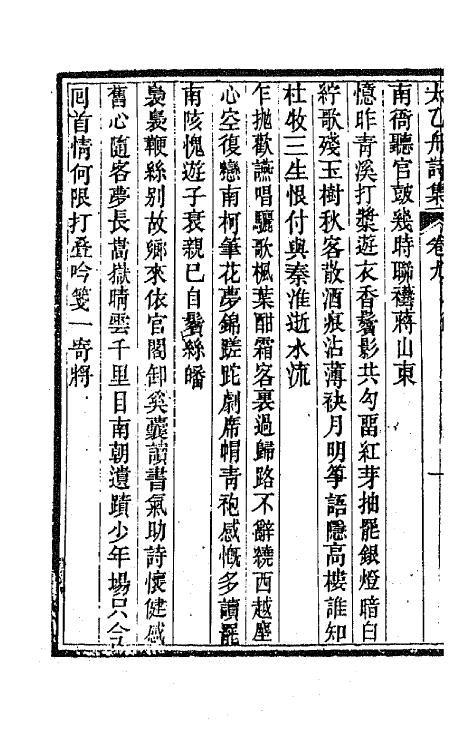 太乙舟詩集 卷九 一
南衙聽官鼓幾時聯襼蔣山東
憶昨青溪打槳遊衣香鬢影共勾留紅芽抽罷銀燈暗白
紵歌殘玉樹秋客散酒痕沾薄袂月明箏語隱高樓誰知
杜牧三生恨付與秦淮逝水流
乍拋歡讌唱驪歌楓葉酣霜客裏過歸路不辭繞西越塵
心空復戀南柯筆花夢錦蹉跎劇席帽青袍感慨多讀罷
南陔愧遊子衰親已自鬢絲皤
裊裊鞭絲別故鄉來依官閣卸奚囊讀書氣助詩懷健感
舊心隨客夢長嵩嶽晴雲千里目南朝遺蹟少年場只今
回首情何限打疊吟箋一寄將